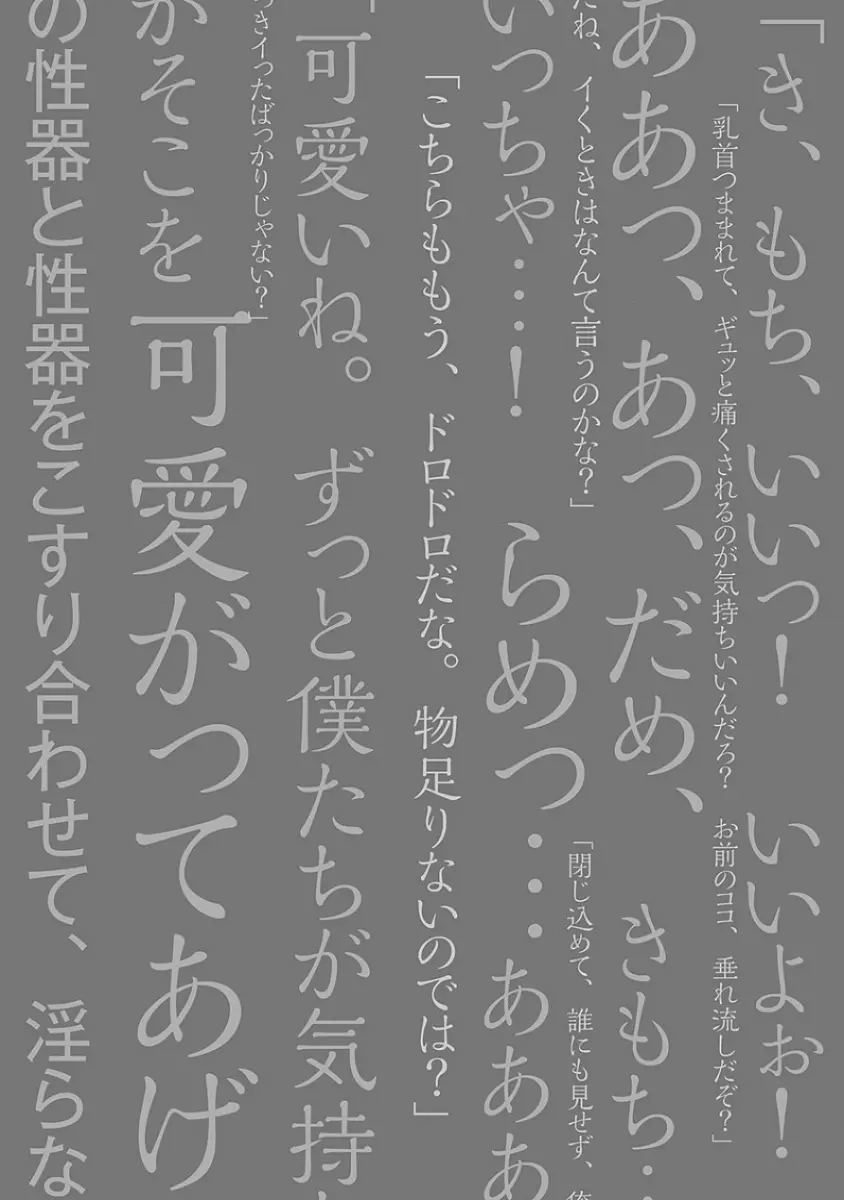 「き、もち、いいっ！　いいよぉ！
「乳首つままれて、ギュッと痛くされるのが気持ちいいんだろ？　お前のココ、垂れ流しだぞ？」
ああっ、あっ、だめ、　きもち…
だね、イくときはなんて言うのかな？」
「閉じ込めて、誰にも見せず、俺
いっちゃ…！　らめっ…あああ
「こちらももう、ドロドロだな。物足りないのでは？」
「可愛いね。ずっと僕たちが気持
っきイったばっかりじゃない？」
がそこを可愛がってあげ
の性器と性器をこすり合わせて、淫らな